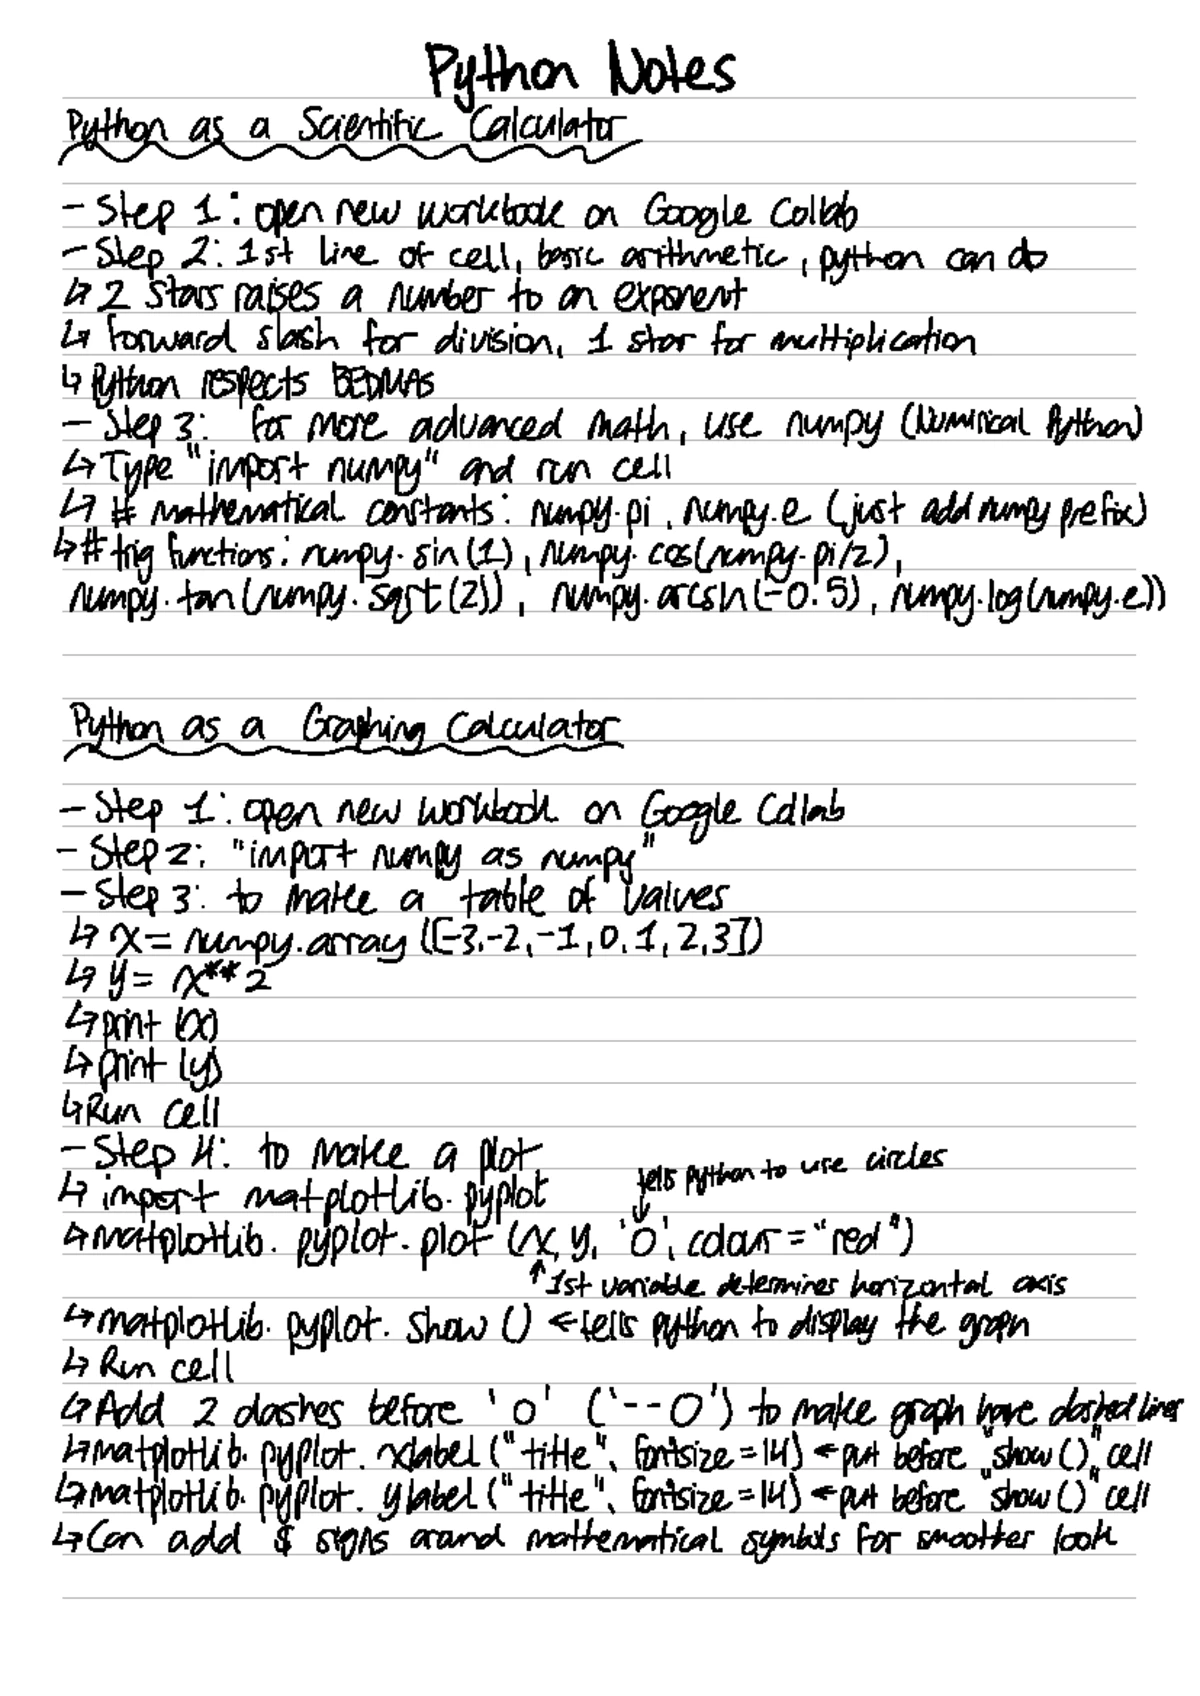 Python Notes
Python as a Scientific Calculator
- Step 1: open new workbook on Google Collab
- Step 2: 1st line of cell, basic arithmetic, python can do
↳ 2 stars raises a number to an exponent
↳ forward slash for division, 1 star for multiplication
↳ Python respects BEDMAS
- Step 3: for more advanced math, use numpy (Numirical Python)
↳ Type "import numpy" and run cell
↳ # mathematical constants: numpy.pi, numpy.e (just add numpy prefix)
↳ # trig functions: numpy.sin(1), numpy.cos(numpy.pi/2),
numpy.tan(numpy.sqrt(2)), numpy.arcsin(-0.5), numpy.log(numpy.e))
Python as a Graphing Calculator
- Step 1: open new workbook on Google Collab
- Step 2: "import numpy as numpy"
- Step 3: to make a table of values
↳ x = numpy.array([-3,-2,-1,0,1,2,3])
↳ y = x**2
↳ print (x)
↳ print (y)
↳ Run cell
- Step 4: to make a plot
tells python to use circles
↳ import matplotlib.pyplot
↳ matplotlib.pyplot.plot (x, y, 'o', colour = "red")
↑ 1st variable determines horizontal axis
↳ matplotlib.pyplot.show () ← tells python to display the graph
↳ Run cell
↳ Add 2 dashes before 'o' ('--o') to make graph have dashed lines
↳ matplotlib.pyplot.xlabel ("title", fontsize = 14) ← put before "show()" cell
↳ matplotlib.pyplot.ylabel ("title", fontsize = 14) ← put before "show()" cell
↳ Can add $ signs around mathematical symbols for smoother look